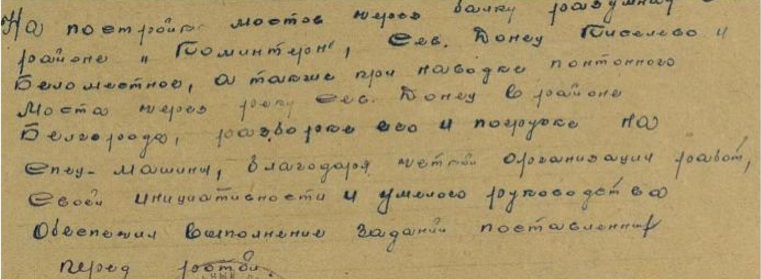 На постройке мостов через балку разумная
районе „Коминтерн", Сев. Донец Киселево и
Беломестное, а также при наводке понтонного
Моста через реку Сев. Донец в районе
Белгорода, разборке его и погрузке на
Спец-машины, благодаря четкой организации работ,
Своей инициативности и умелого руководства
Обеспечил выполнение заданий поставленных
перед ротой.